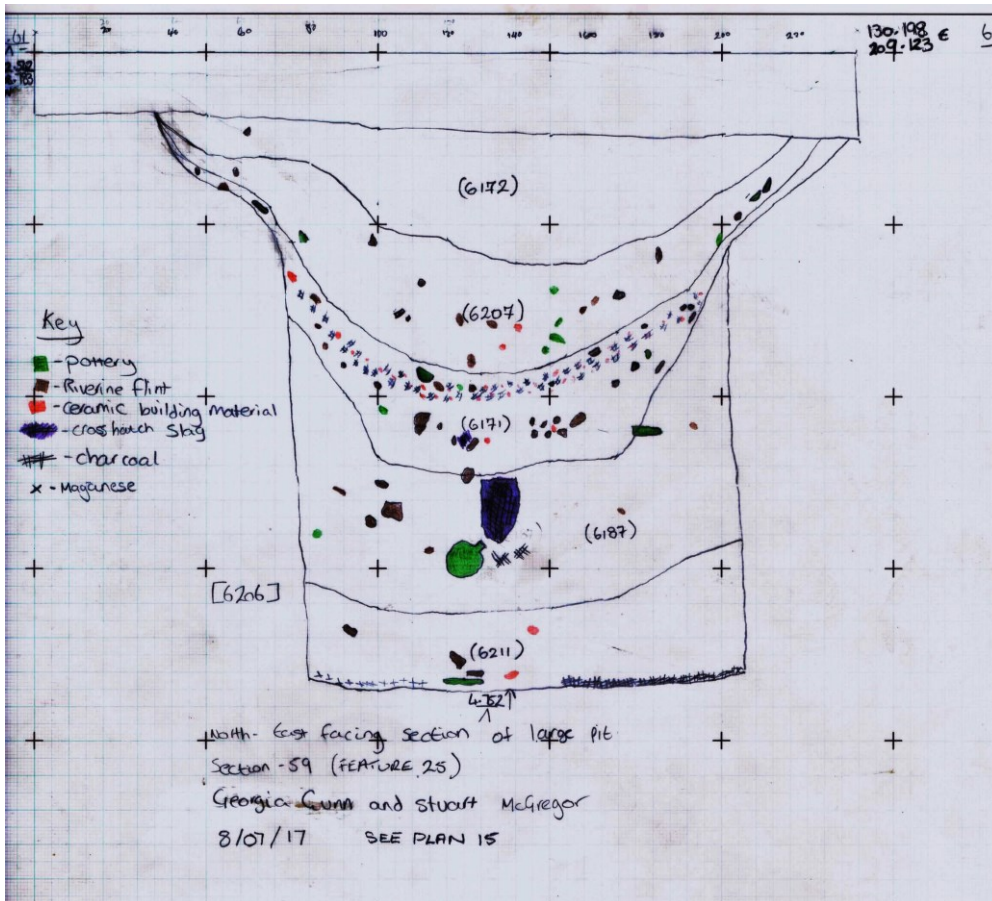 20 40 80 100 120 140 1600 180 200 220
130.198 E 6
209.123
(6172)
(6207)
Key
- pottery
- Riverine flint
- ceramic building material
- cross hatch slag
- charcoal
x - Maganese
(6171)
(6187)
[6206]
(6211)
4.752
North-East facing section of large pit
Section-59 (FEATURE 25)
Georgia Gunn and Stuart McGregor
8/07/17 SEE PLAN 15